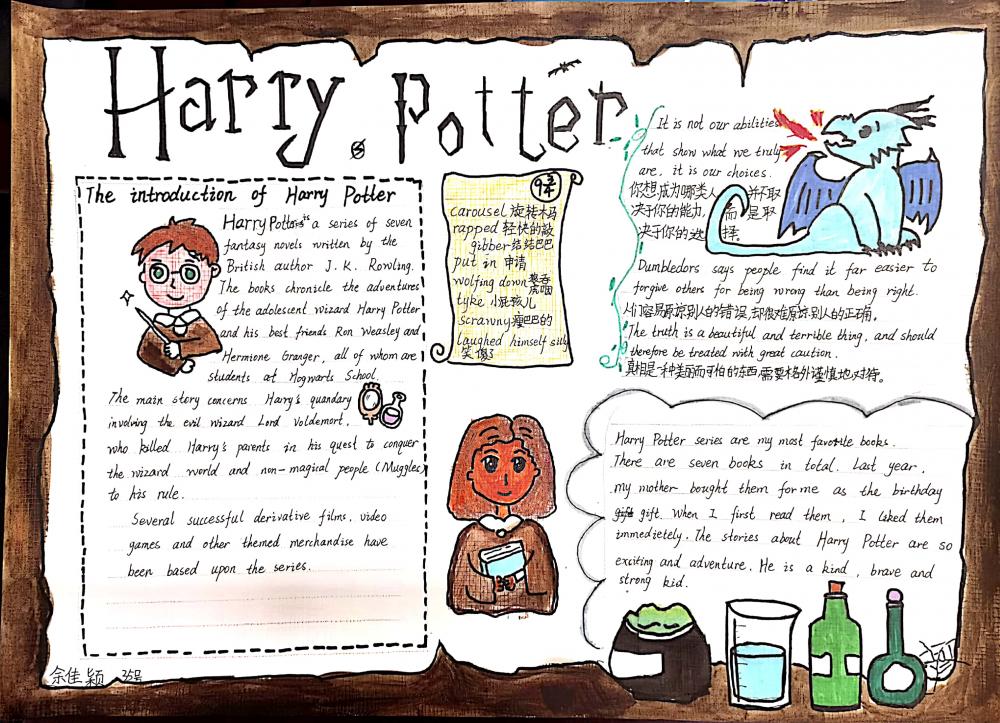 Harry Potter
The introduction of Harry Potter
Harry Potter is a series of seven
fantasy novels written by the
British author J. K. Rowling.
The books chronicle the adventures
of the adolescent wizard Harry Potter
and his best friends Ron Weasley and
Hermione Granger, all of whom are
students at Hogwarts School.
The main story concerns Harry's quandary
involving the evil wizard Lord Voldemort,
who killed Harry's parents in his quest to conquer
the wizard world and non-magical people (Muggles)
to his rule.
Several successful derivative films, video
games and other themed merchandise have
been based upon the series.
9 3/4
carousel 旋转木马
rapped 轻快的敲
gibber 结结巴巴
put in 申请
wolfing down 狼吞虎咽
tyke 小屁孩儿
scrawny 瘦巴巴的
laughed himself silly
笑傻了
It is not our abilities
that show what we truly
are, it is our choices.
你想成为哪类人 并不取
决于你的能力, 而是取
决于你的选择。
Dumbledors says people find it far easier to
forgive others for being wrong than being right.
人们容易原谅别人的错误,却很难原谅别人的正确。
The truth is a beautiful and terrible thing, and should
therefore be treated with great caution.
真相是一种美丽而可怕的东西,需要格外谨慎地对待。
Harry Potter series are my most favorite books.
There are seven books in total. Last year,
my mother bought them for me as the birthday
gift. When I first read them, I liked them
immedietely. The stories about Harry Potter are so
exciting and adventure. He is a kind, brave and
strong kid.
余佳颖